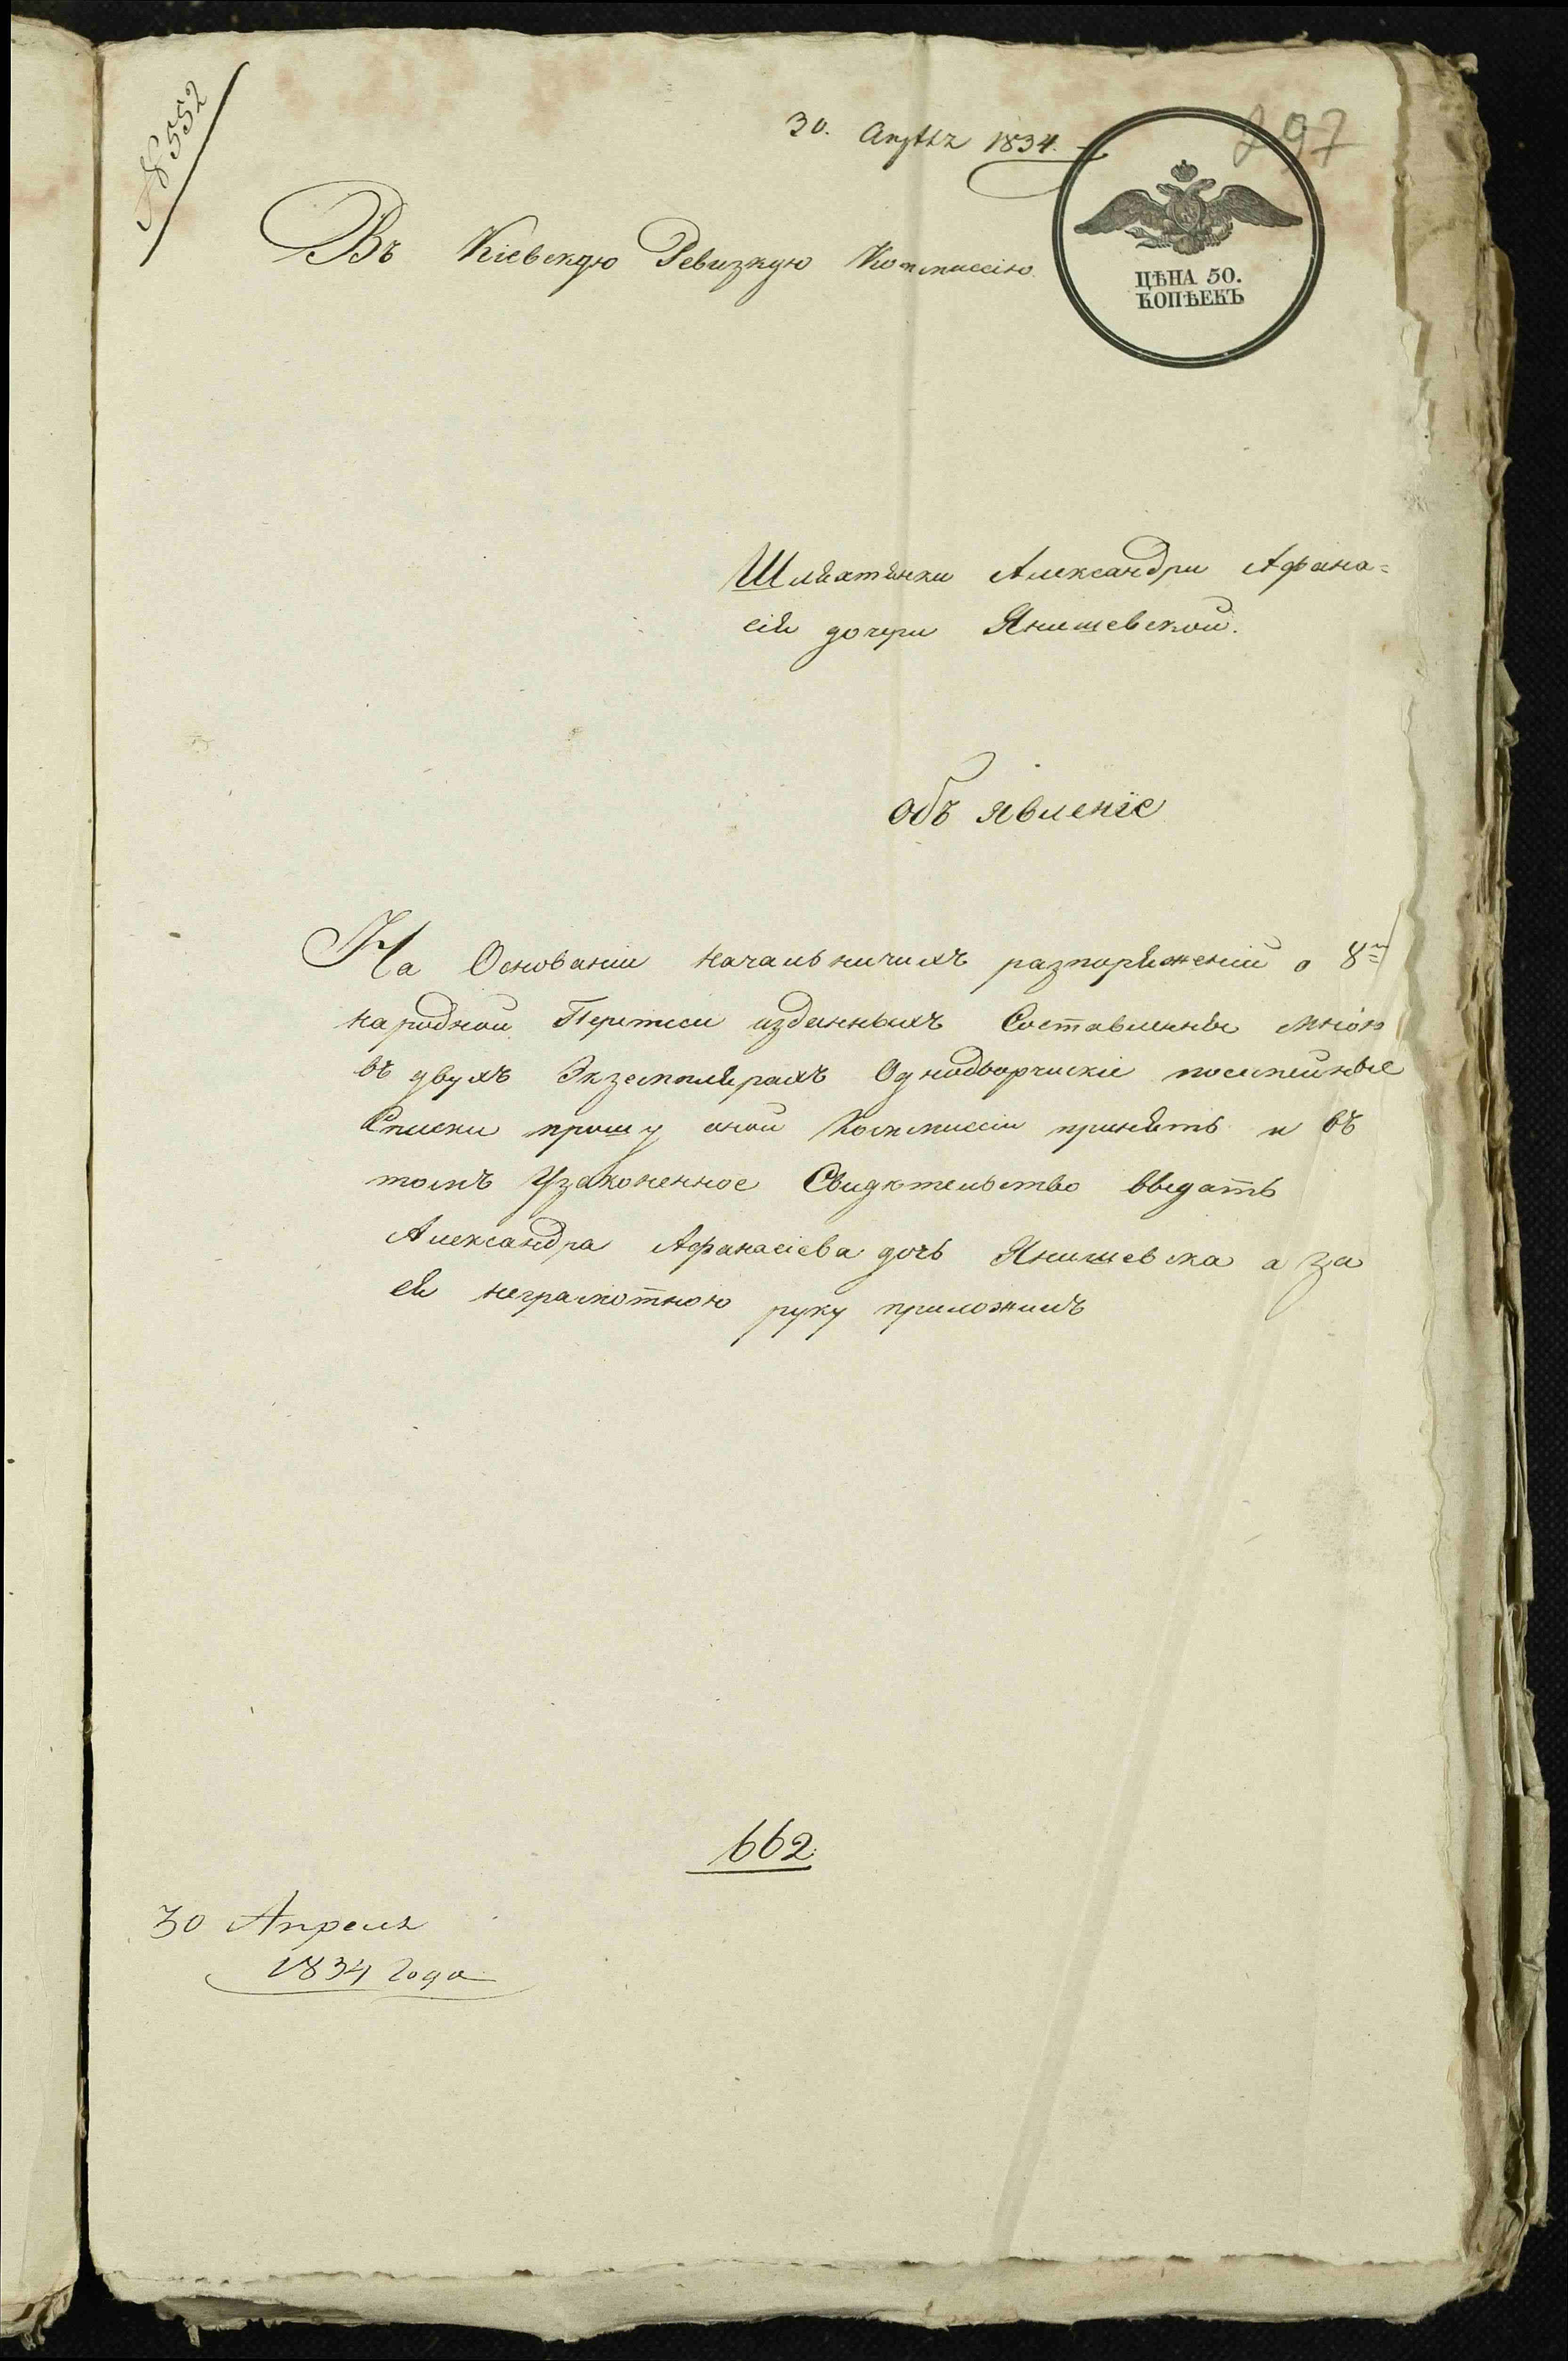 № 552
30. Апрѣля 1834.
297
Въ Кіевскую Ревизкую Коммиссію
ЦѢНА 50.
КОПѢЕКЪ
Шляхтянки Александри Афана=
сія дочери Янишевской.
объ явленіе
На Основаніи Начальничихъ разпоряженій о 8й
народной Переписи изданныхъ Составленныя мною
въ двухъ Экземплярахъ Однодворчискіе посемейные
Списки прошу оной Коммиссіи принять и въ
томъ Узаконенное Свидѣтельство выдать
Александра Афанасіева дочь Янишевска а за
ея неграмотною руку приложилъ
662
30 Апреля
1834 года